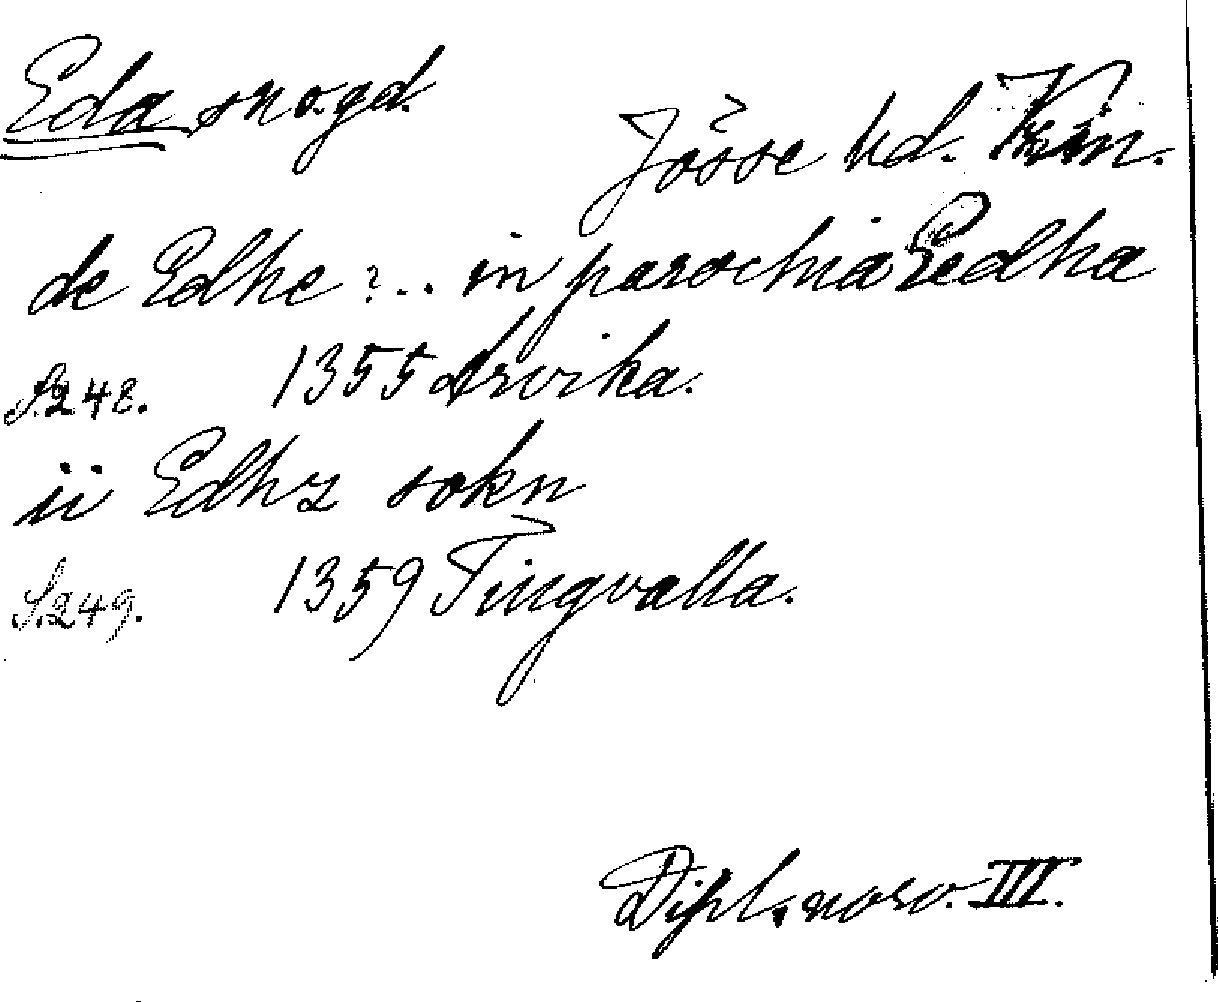 Eda sn o. gd.
Jösse hd. Vrm.
de Edhe ? .. in parochia Eedha
S. 248. 1355 Arvika.
ii Edhz sokn
S. 249. 1359 Tingvalla.
Dipl. norv. III.